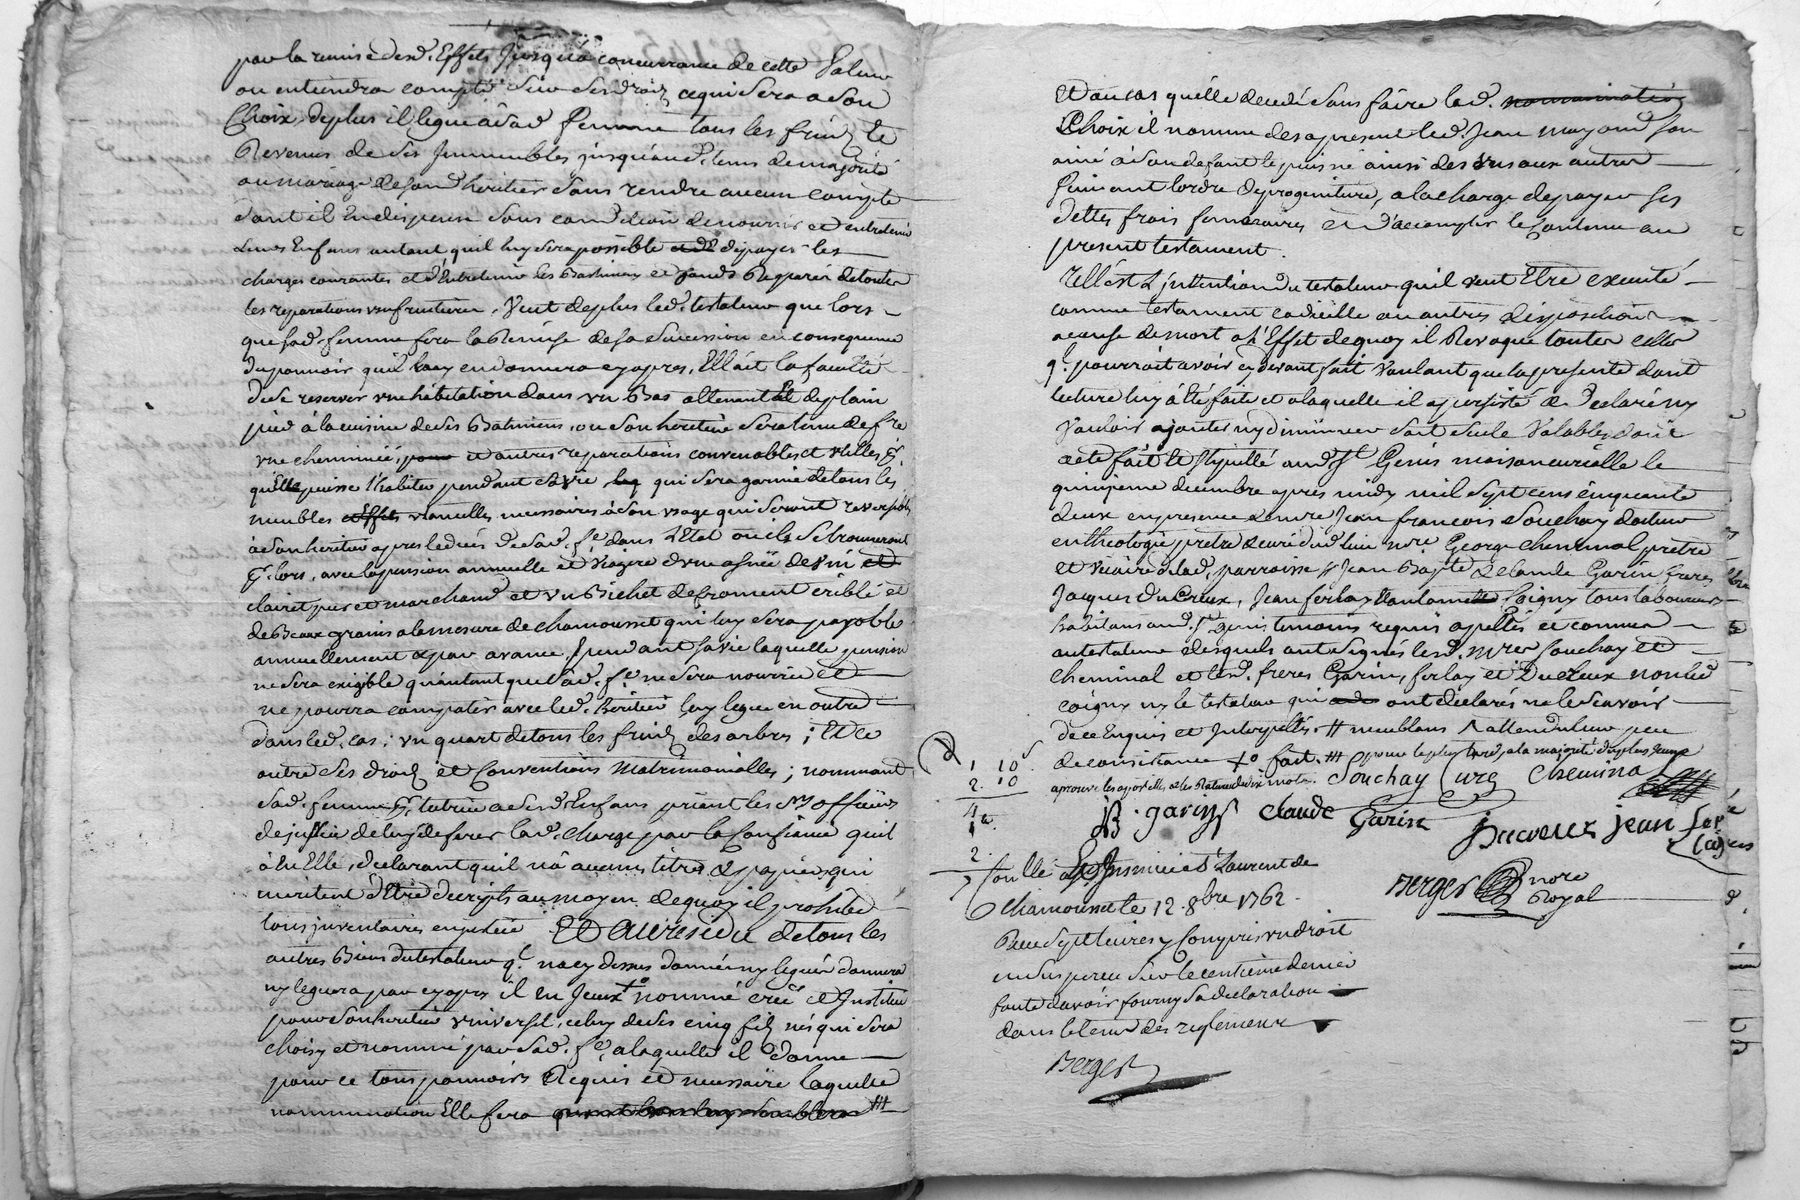 par la remise desd. Effets Jusqu'à concurrance de cette Valeur
ou entiendra compte sur ses droits ce qui sera a son
Choix, deplus il legue à sad. femme tous les fruits et
Revenus de ses Jmmeubles jusqu'aud. tems de majorité
ou mariage desond. heritier sans rendre aucun compte
dont il La dispense sous condition de nourrir et entretenir
Leurs Enfans autant quil luy sera possible de payer les
charges courantes et d'Entretenir les Bastimens et fonds Reparer de toutes
les reparations usufruitieres, Veut deplus led. testateur que lors
que sad. femme fera la Remise de sa succession en consequence
du pouvoir quil luy en donnera cy apres, Elle ait la faculté
de se reserver une habitation dans un Bas attenant et deplain
pied à la cuisine de ses Batimens, ou son heritier sera tenu de fre
une cheminée, et autres reparations convenables et utilles pr.
qu'Elle puisse l'habiter pendant sa vie qui sera garnie de tous les
meubles necessaires à son usage qui seront reversibles
à son heritier apres le deces de sad. fe. dans L'Etat ou ils se trouveront
pr. lors, avec la pension annuelle et Viagere d'une asnée de vin
clairet pur et marchand et un Bichet de froment criblé et
de Beaux grains a la mesure de chamousset qui luy sera payable
annuellement et par avance pendant sa vie laquelle pension
ne sera exigible qu'autant que sad. fe. ne sera nourrie et
ne pourra compatir avec led. heritier luy legue en outre
dans led. cas; un quart de tous les fruits des arbres; Et ce
outre ses droits et Conventions Matrimonialles; nommant
sad. femme pr. tutrice a sesd. Enfans priant les Srs officiers
de justice de luy deferer lad. charge par la Confiance quil
à En Elle, declarant quil n'a aucuns titres et papiers qui
meritent d'Etre decripts au moyen de quoy il prohibe
tous inventaires en justice Et Au residu de tous les
autres Biens du testateur qt. na cy dessus donné ny legué donnera
ny leguera par cy apres il En Jceux +o nommé créé et Jnstitue
pour son heritier universel, celuy de ses cinq fils nés qui sera
choisy et nommé par sad. fe. a laquelle il donne
pour ce tous pouvoirs Requis et necessaire laquelle
nommination Elle fera #
Et au cas qu'elle decede sans faire lad. nommination
Choix il nomme des apresent led. Jean mayoud son
ainé à son defaut le puis né ainsi des uns aux autres
suivant lordre de progeniture, a la charge de payer ses
dettes frais funeraires et d'accomplir le contenu au
present testament.
Telle est L'jntention du testateur quil veut Etre executé
comme testament codicille ou autres disposition
a cause de mort a l'Effet de quoy il Revoque toutes celles
qt. pourroit avoir cy devant fait Voulant que la presente dont
lecture luy à Eté faite et a laquelle il a persisté et Declaré ny
Vouloir ajouter ny diminuer soit seule Valable, dont
acte fait et stipullé aud. St. Genis maison curialle le
quinzieme decembre apres midy mil sept cens cinquante
deux en presence de mre Jean francois Souchay docteur
en theologie pretre et curé dud. lieu mre. George cheminal pretre
et vicaire de lad. parroisse sr Jean Bapte et claude Garin freres
Jacques Ducreux, Jean ferlay Coigny tous laboureurs
habitans aud. St. genis temoins requis apellés et connus
au testateur desquels ont signés lesd. mres Souchay et
cheminal et lesd. freres Garin, ferlay et Ducreux non led.
Coigny ny le testateur qui ont declarés ne le scavoir
de ce Enquis et Jnterpellés. # meublans attendu leur peu
de consistance +o fait. ### pour le plus tard a la majorité du plus jeune
aprouvé les apostilles et les Ratures de dix mots. Souchay Curé Cheminal
JB. garin claude Garin Ducreux jean ferlay
1. 10s
2. 10
4.
2.
7
Controllé et Insinué à St Laurent de
chamousset le 12. 8bre 1762.
Berger nore
Royal
Receu Sept livres y Compris un droit
en sus perceu sur le centieme denier
faute d'avoir fourny sa declaration
dans le tems des reglemens
Berger